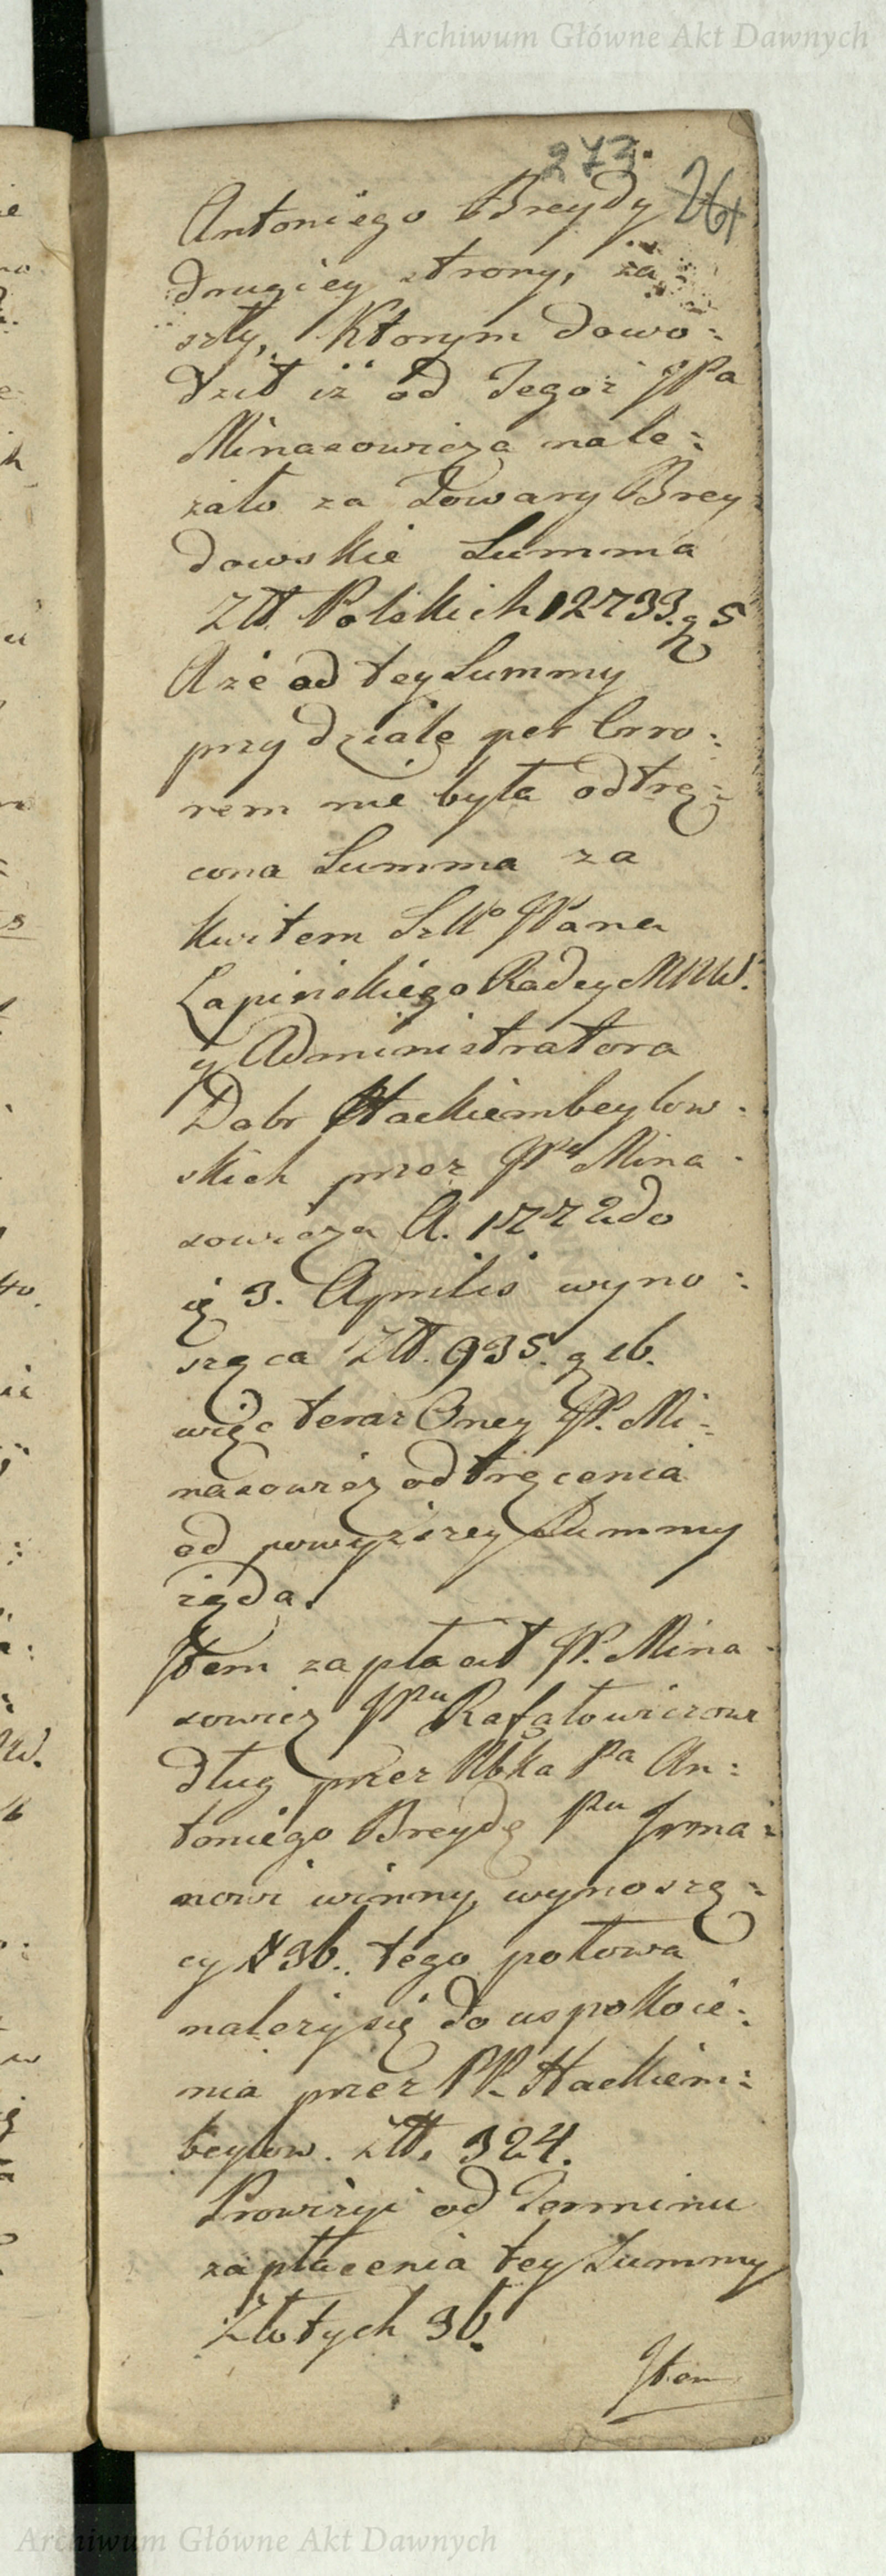 Archiwum Główne Akt Dawnych
273.
Antoniego Breydy
drugiey strony, za
szły, Ktorym dowo:
dził iż od Tegoż JPa
Minasowicza nale:
żało za Towary Brey
dowskie Summa
Zł. Polskich 12733. g 5
Aże od tey Summy
przy dziale per Erro:
rem nie była odtrą:
cona Summa za
kwitem Szllo JPana
Łapińskiego Radcy MNW.
y Administratora
Dobr Hackiembeylow.
skich przez JPa Mina
sowicza A. 1772do
ię 3. Aprilis wyno:
sząca Zł. 935. g 16.
więc teraz Oney JP. Mi:
nasowicz odtrącenia
od powyższey Summy
żąda.
Jtem zapłacił JP. Mina
sowicz JPnu Rafałowiczowi
dług przez Pa An:
toniego Breydę Pnu
nowi winny, wynoszą:
cy # 36. tego połowa
należy się do uspokoie:
nia przez PP. Hackiem:
beylow. Zł. 324.
Prowizyi od Terminu
zapłacenia tey Summy
Złotych 36.
Jtem
Archiwum Główne Akt Dawnych